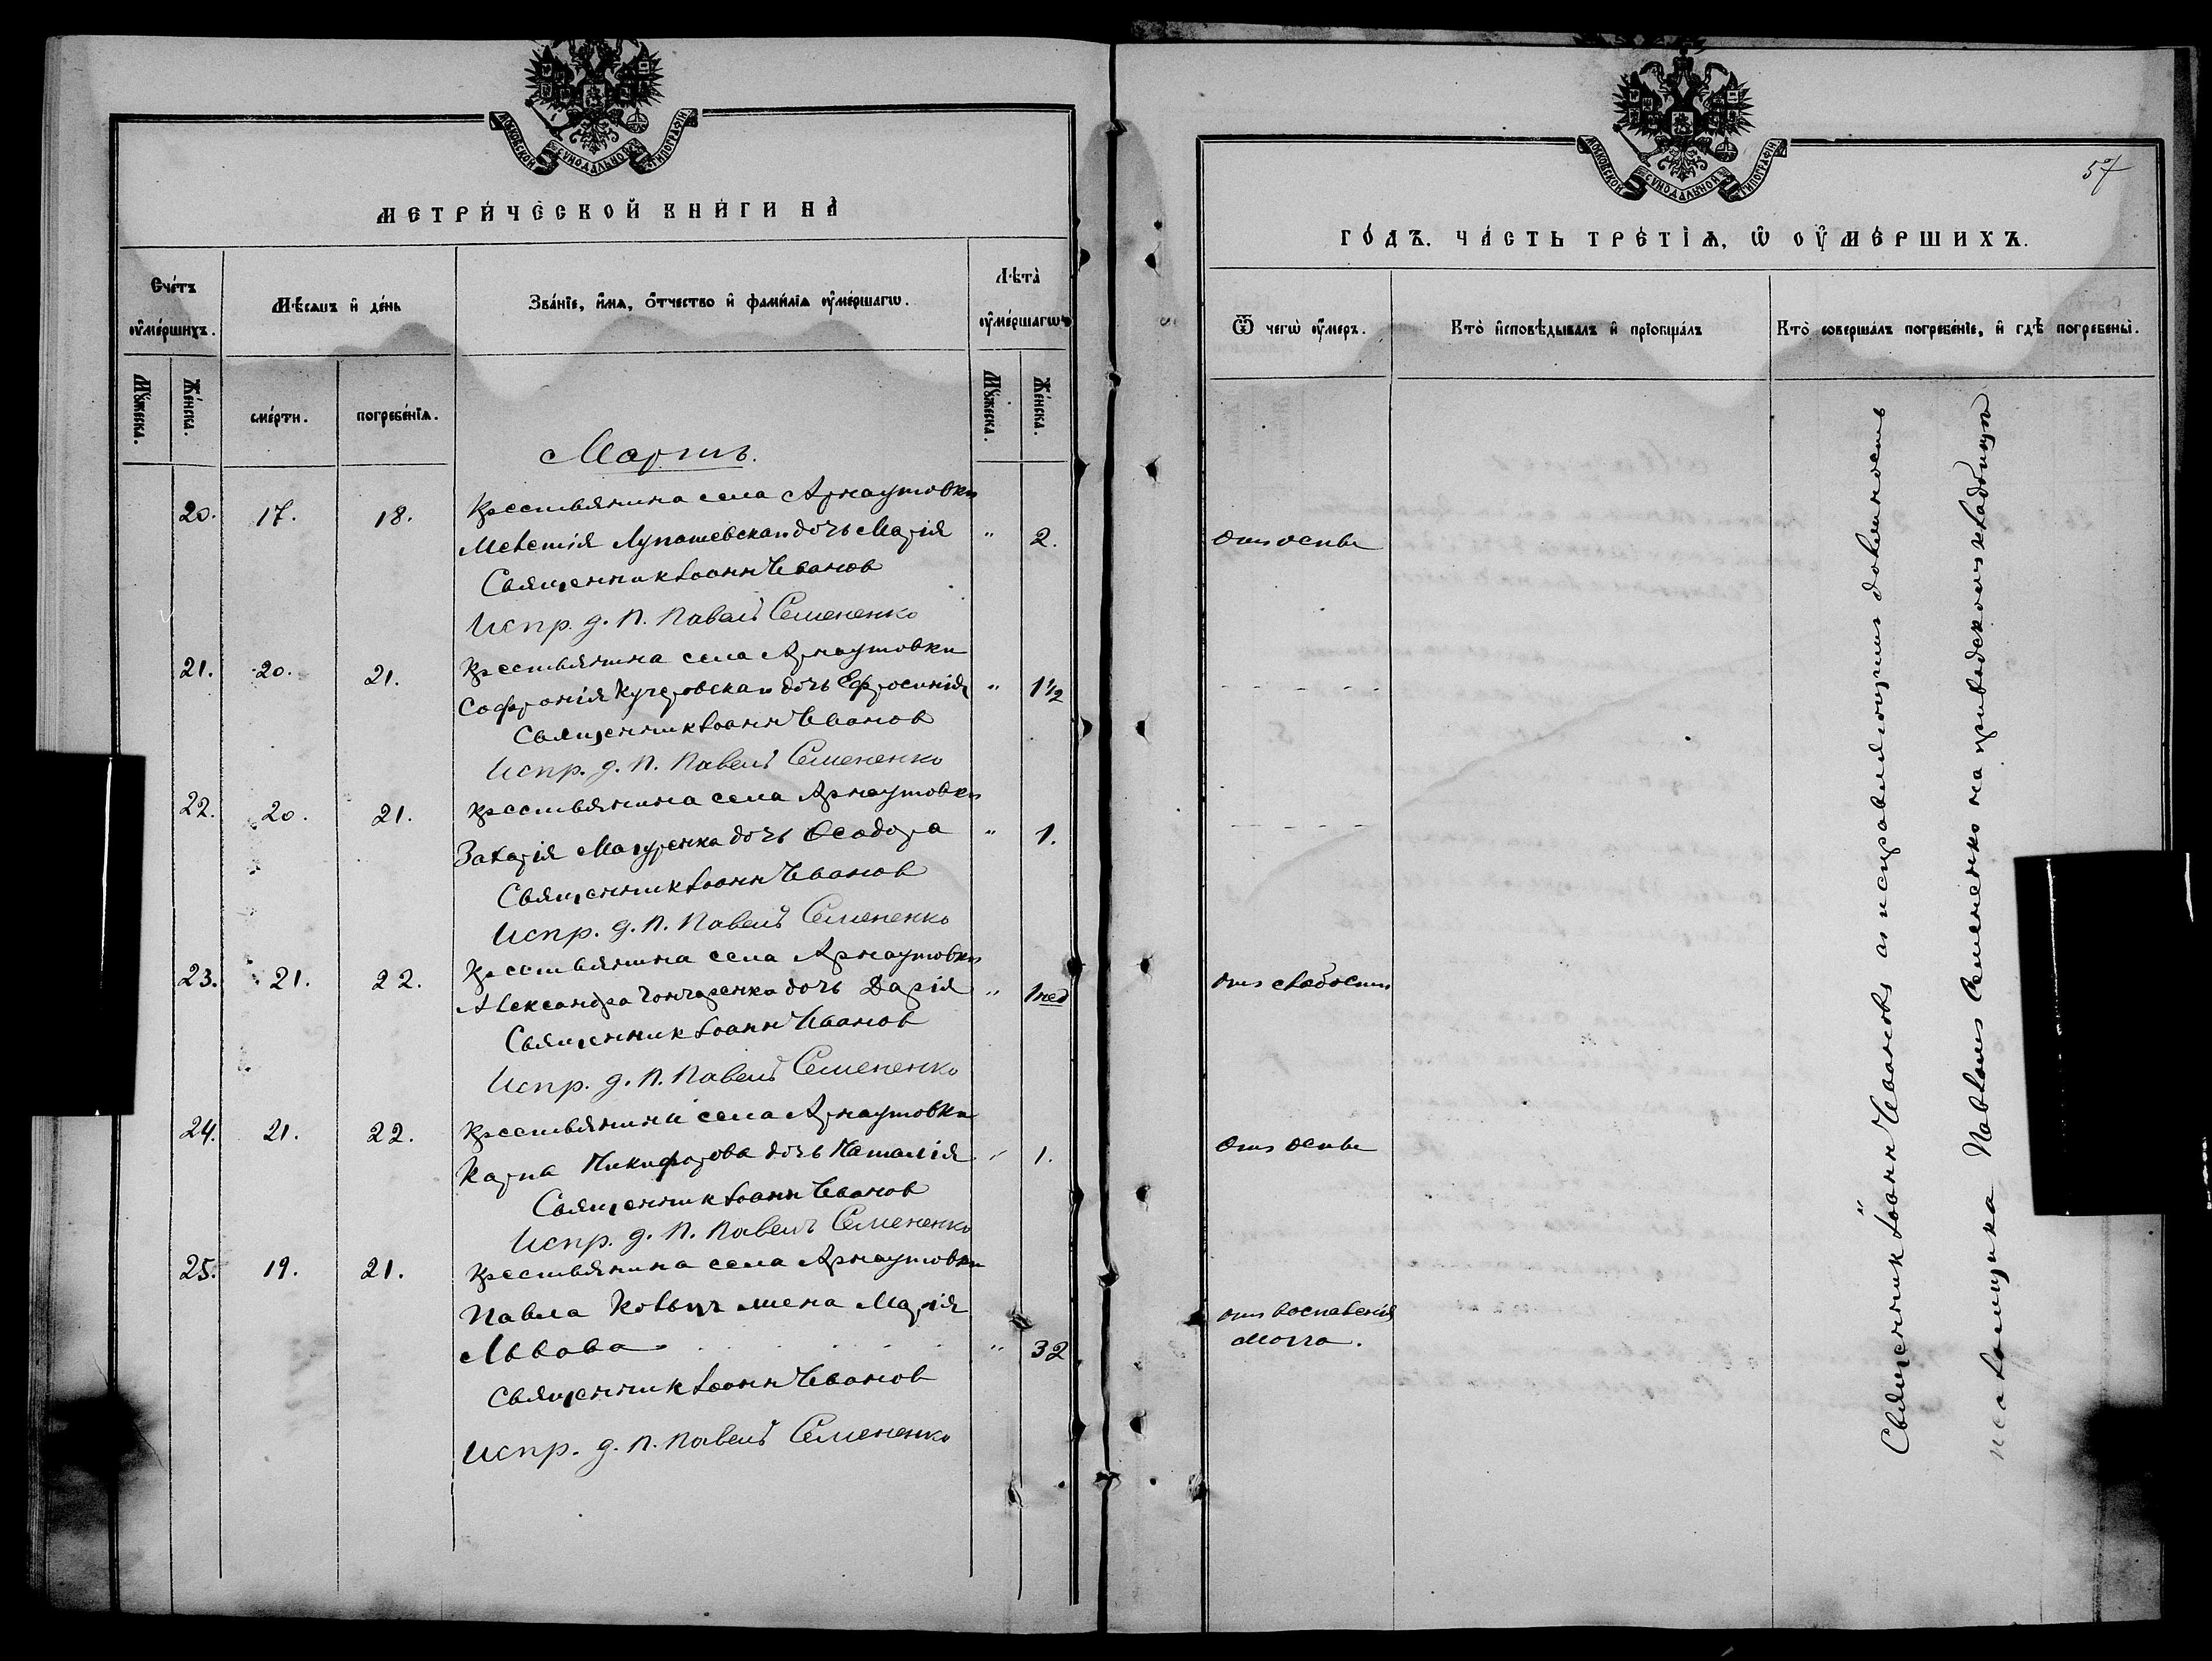 МОСКОВСКОЙ СѴНОДАЛЬНОЙ ТИПОГРАФІИ
МЕТРИ́ЧЕСКОЙ КНИ́ГИ НА̀
Сче́тъ ᲂу҆ме́ршихъ.
Мѣ́сяцъ и҆ де́нь
Зва́нїе, и҆́мя, ѻ҆́тчество и҆ фами́лїя ᲂу҆ме́ршагѡ.
Лѣта̀ ᲂу҆ме́ршагѡ.
Мꙋ́жеска.
Же́нска.
сме́рти.
погребе́нїѧ.
Мꙋ́жеска.
Же́нска.
Мартъ.
20. 17. 18. Крестьянина села Арнаутовки
Мелетія Лупашевскаго дочь Марія " 2.
Священникъ Іоаннъ Чеванов
Испр. д. п. Павелъ Семененко
21. 20. 21. Крестьянина села Арнаутовки
Софронія Кучеровскаго дочь Ефросинія " 1½
Священникъ Іоаннъ Чеванов
Испр. д. п. Павелъ Семененко
22. 20. 21. Крестьянина села Арнаутовки
Захарія Мазуренка дочь Ѳеодора " 1.
Священникъ Іоаннъ Чеванов
Испр. д. п. Павелъ Семененко
23. 21. 22. Крестьянина села Арнаутовки
Александра Гончаренка дочь Дарія " 1 нед
Священникъ Іоаннъ Чеванов
Испр. д. п. Павелъ Семененко
24. 21. 22. Крестьянина села Арнаутовки
Карпа Никифорова дочь Наталія " 1.
Священникъ Іоаннъ Чеванов
Испр. д. п. Павелъ Семененко
25. 19. 21. Крестьянина села Арнаутовки
Павла жена Марія
Львова " 32
Священникъ Іоаннъ Чеванов
Испр. д. п. Павелъ Семененко
МОСКОВСКОЙ СѴНОДАЛЬНОЙ ТИПОГРАФІИ
57
ГО́ДЪ. ЧА́СТЬ ТРЕ́ТЇѦ, Ѡ҆ ОУ҆МЕ́РШИХЪ.
Ѿ чегѡ̀ ᲂу҆́меръ.
Кто̀ и҆сповѣ́дывалъ и҆ прїѡбща́лъ
Кто̀ соверша́лъ погребе́нїе, и҆ гдѣ̀ погребены̀.
отъ оспы
- - - - - -
- - - - -
отъ слабости
отъ оспы
отъ воспаленія
мозга.
Священникъ Іоаннъ Чевановъ съ исправляющимъ должность
псаломщика Павломъ Семененко на приходскомъ кладбищѣ